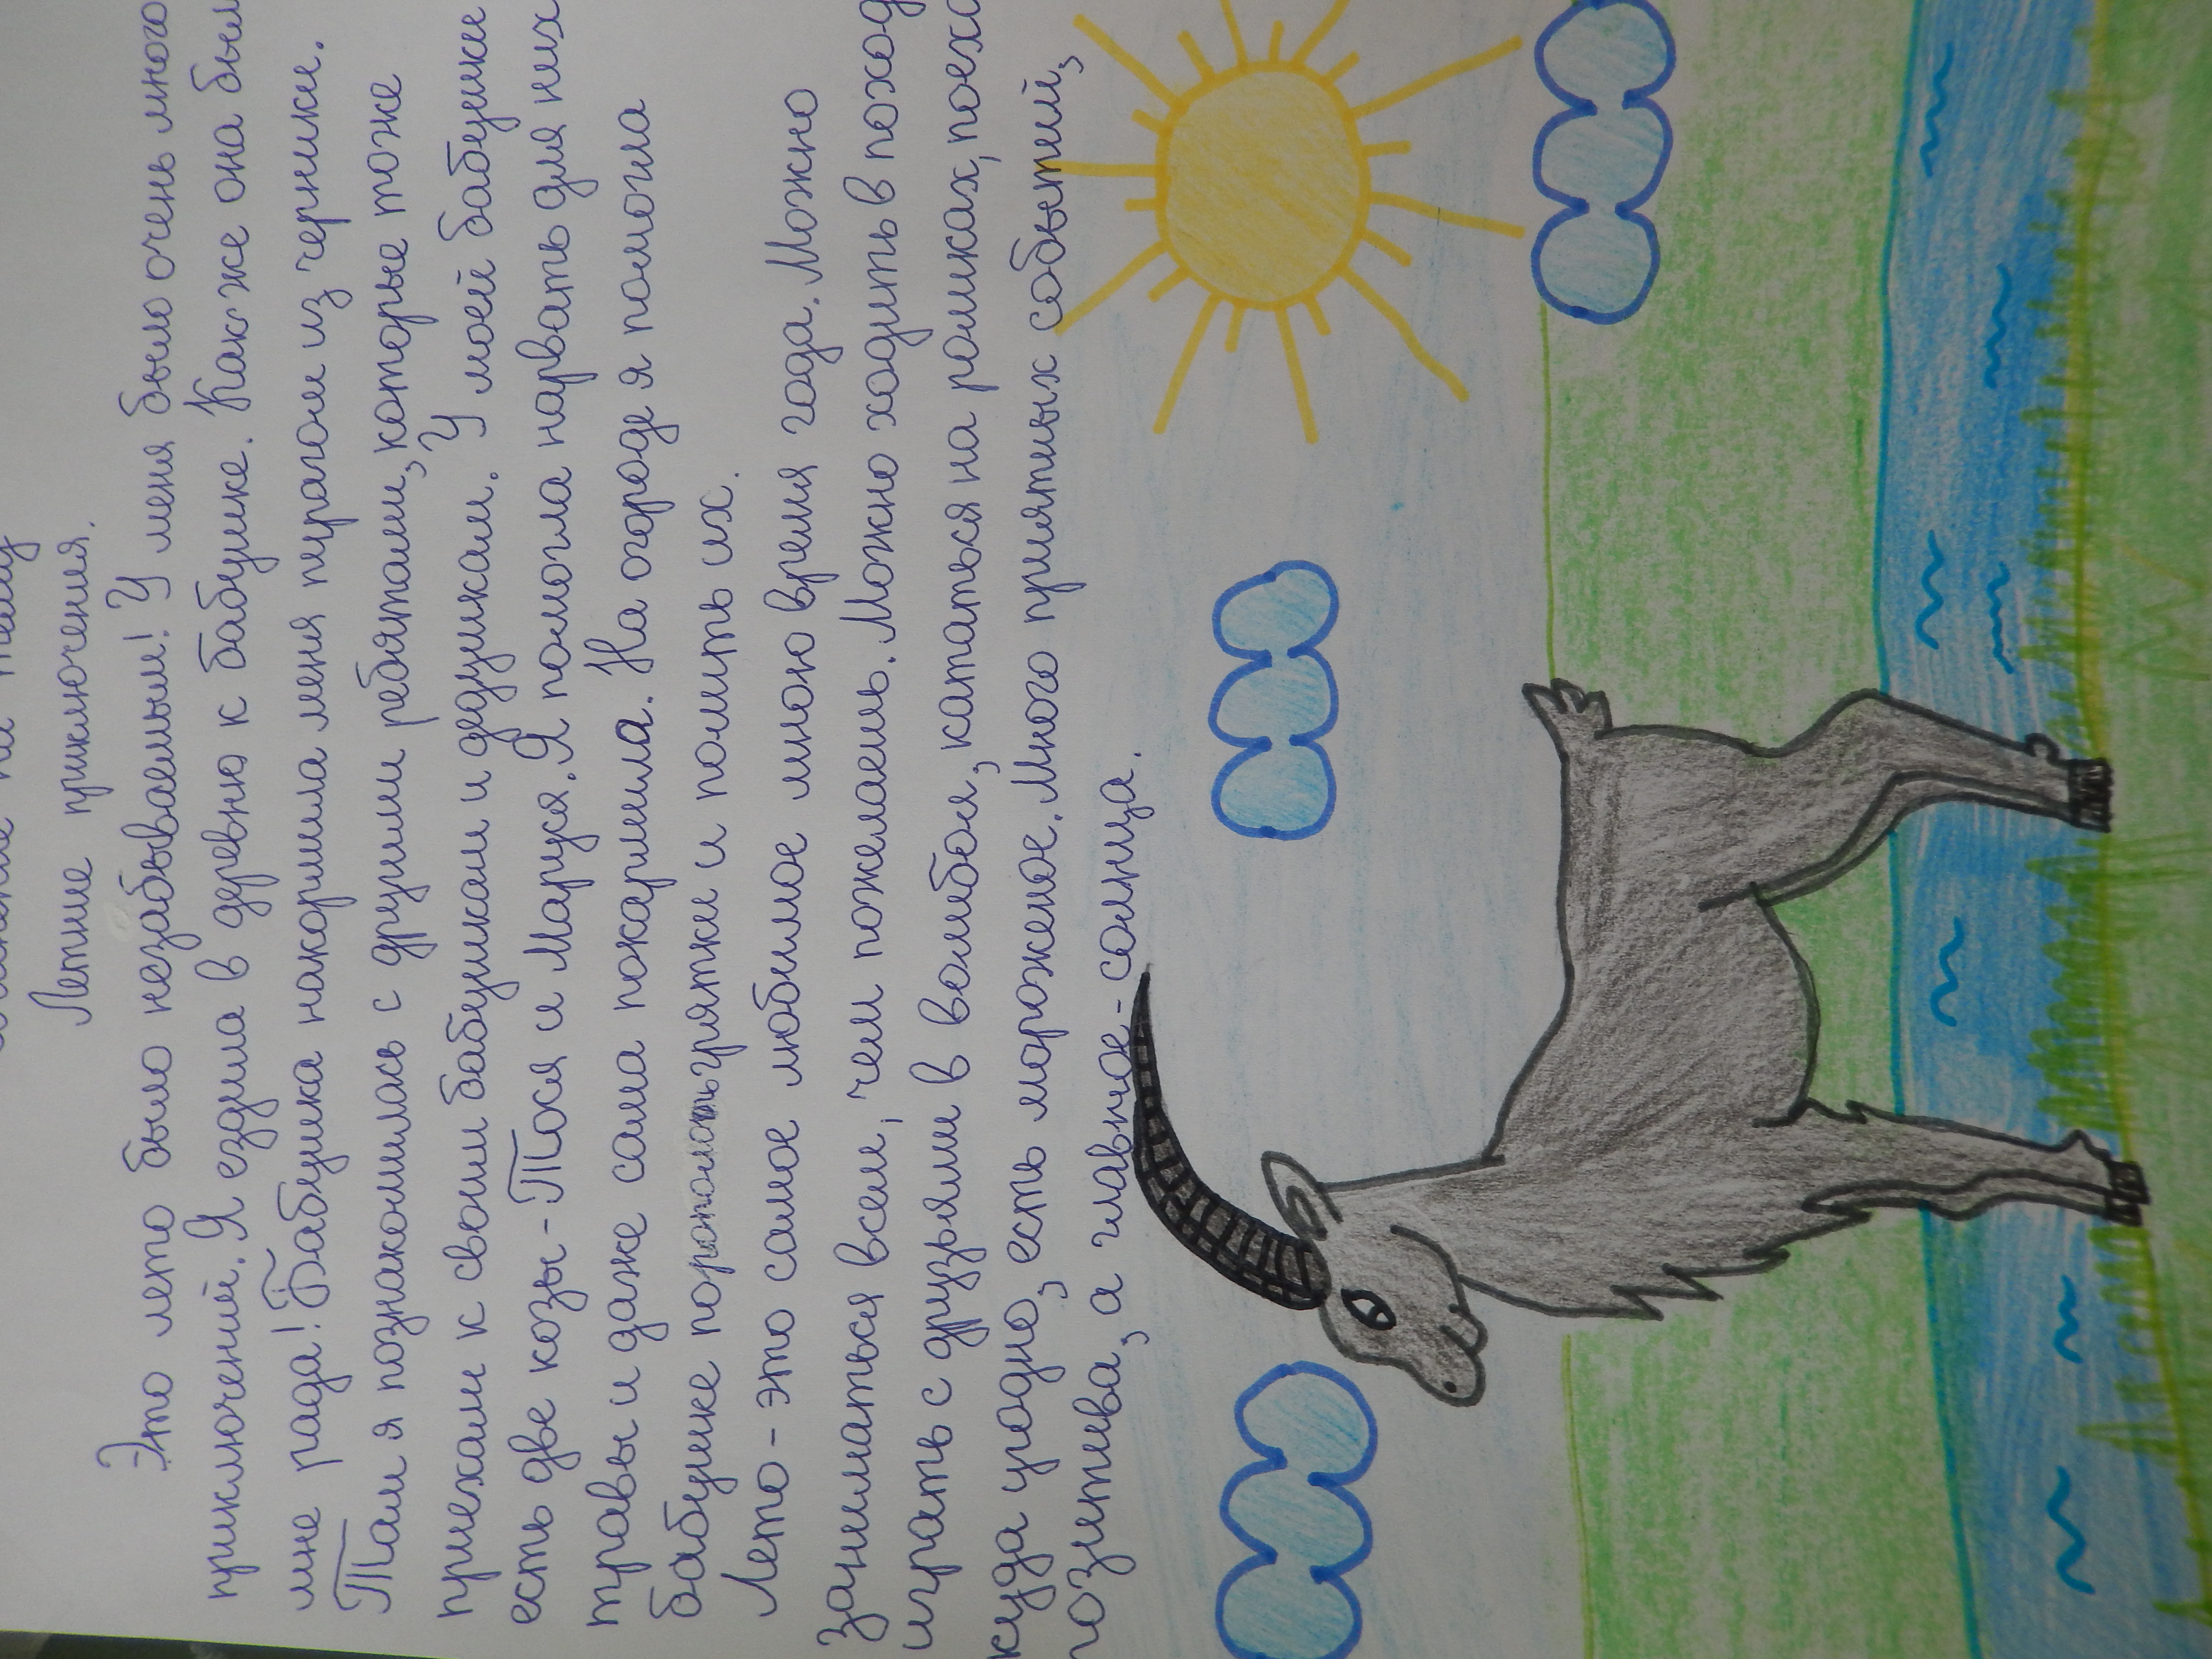 Летние приключения.
Это лето было незабываемым! У меня было очень много
приключений. Я ездила в деревню к бабушке. Как же она был
мне рада! Бабушка накормила меня пирагом из черники.
Там я познакомилась с другими ребятами, которые тоже
приехали к своим бабушкам и дедушкам. У моей бабушки
есть две козы - Тося и Маруся. Я помогла нарвать для них
травы и даже сама покармила. На огороде я помогла
бабушке порополоть грятки и полить их.
Лето - это самое любимое мною время года. Можно
заниматься всем, чем пожелаешь. Можно ходить в поход
играть с друзьями в волейбол, кататься на роликах, поеха
куда угодно, есть мороженое. Много приятных событий,
позитива, а главное - солнца.